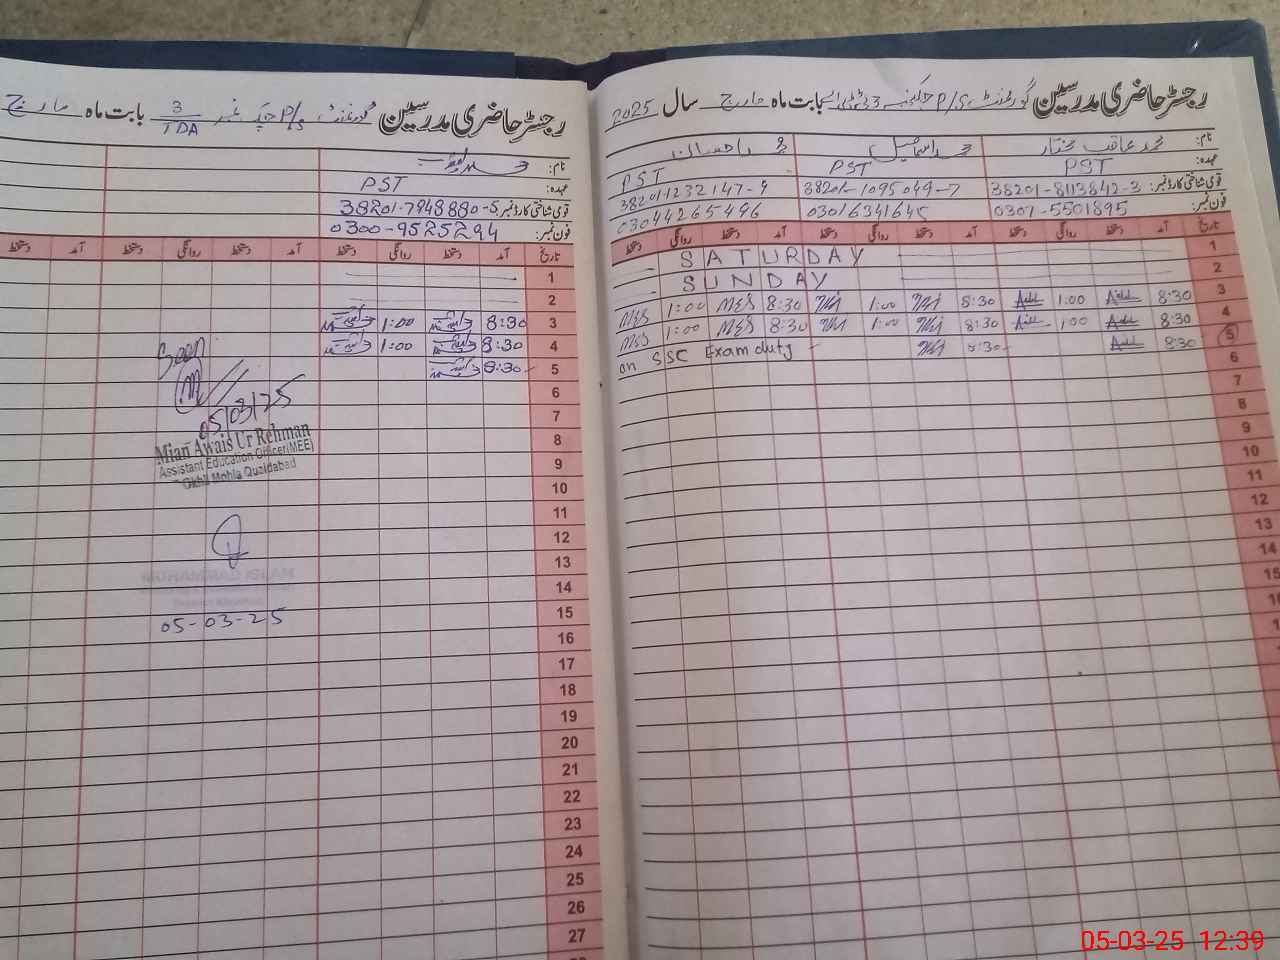 رجسٹر حاضری مدرسین گورنمنٹ P/S چک نمبر 3 ٹی ڈی اے بابت ماہ مارچ سال 2025
نام: محمد عاقب مختار محمد اسماعیل
عہدہ: PST PST PST
قومی شناختی کارڈ نمبر: 38201-8113842-3 38201-1095049-7 38201-1232147-9
فون نمبر: 0307-5501895 03016341645 03044265496
تاریخ آمد دستخط روانگی دستخط آمد دستخط روانگی دستخط آمد دستخط روانگی دستخط
1 SATURDAY
2 SUNDAY
3 8:30 1:00 8:30 1:00 8:30 1:00
4 8:30 1:00 8:30 1:00 8:30 1:00
5 8:30 8:30 on SSC Exam duty
6
7
8
9
10
11
12
13
14
15
رجسٹر حاضری مدرسین گورنمنٹ P/S چک نمبر 3/TDA بابت ماہ مارچ
نام:
عہدہ: PST
قومی شناختی کارڈ نمبر: 38201-7948880-5
فون نمبر: 0300-9525294
تاریخ آمد دستخط روانگی دستخط آمد دستخط روانگی دستخط آمد دستخط
1
2
3 8:30 1:00
4 8:30 1:00
5 8:30
6
7
8
9
10
11
12
13
14
15
16
17
18
19
20
21
22
23
24
25
26
27
Seen
05/03/25
Mian Awais Ur Rehman
Assistant Education Officer(MEE)
Okhli Mohla Quaidabad
05-03-25
05-03-25 12:39